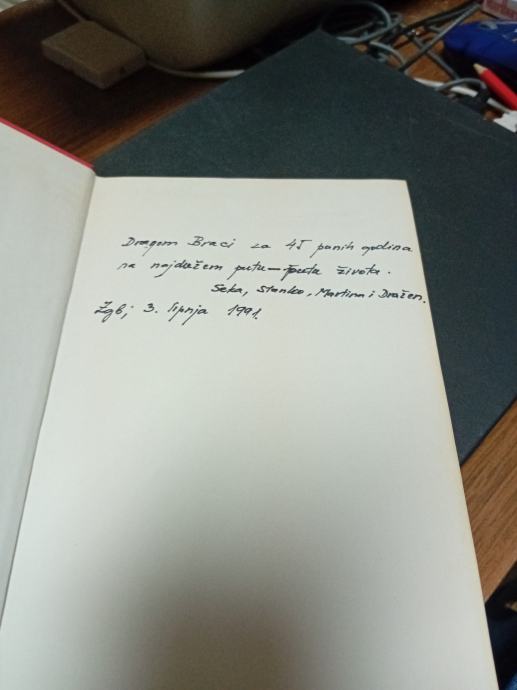 Dragom Braci za 45 punih godina
na najdužem putu — puta života.
Seka, Stanko, Martina i Dražen.
Zgb; 3. lipnja 1991.